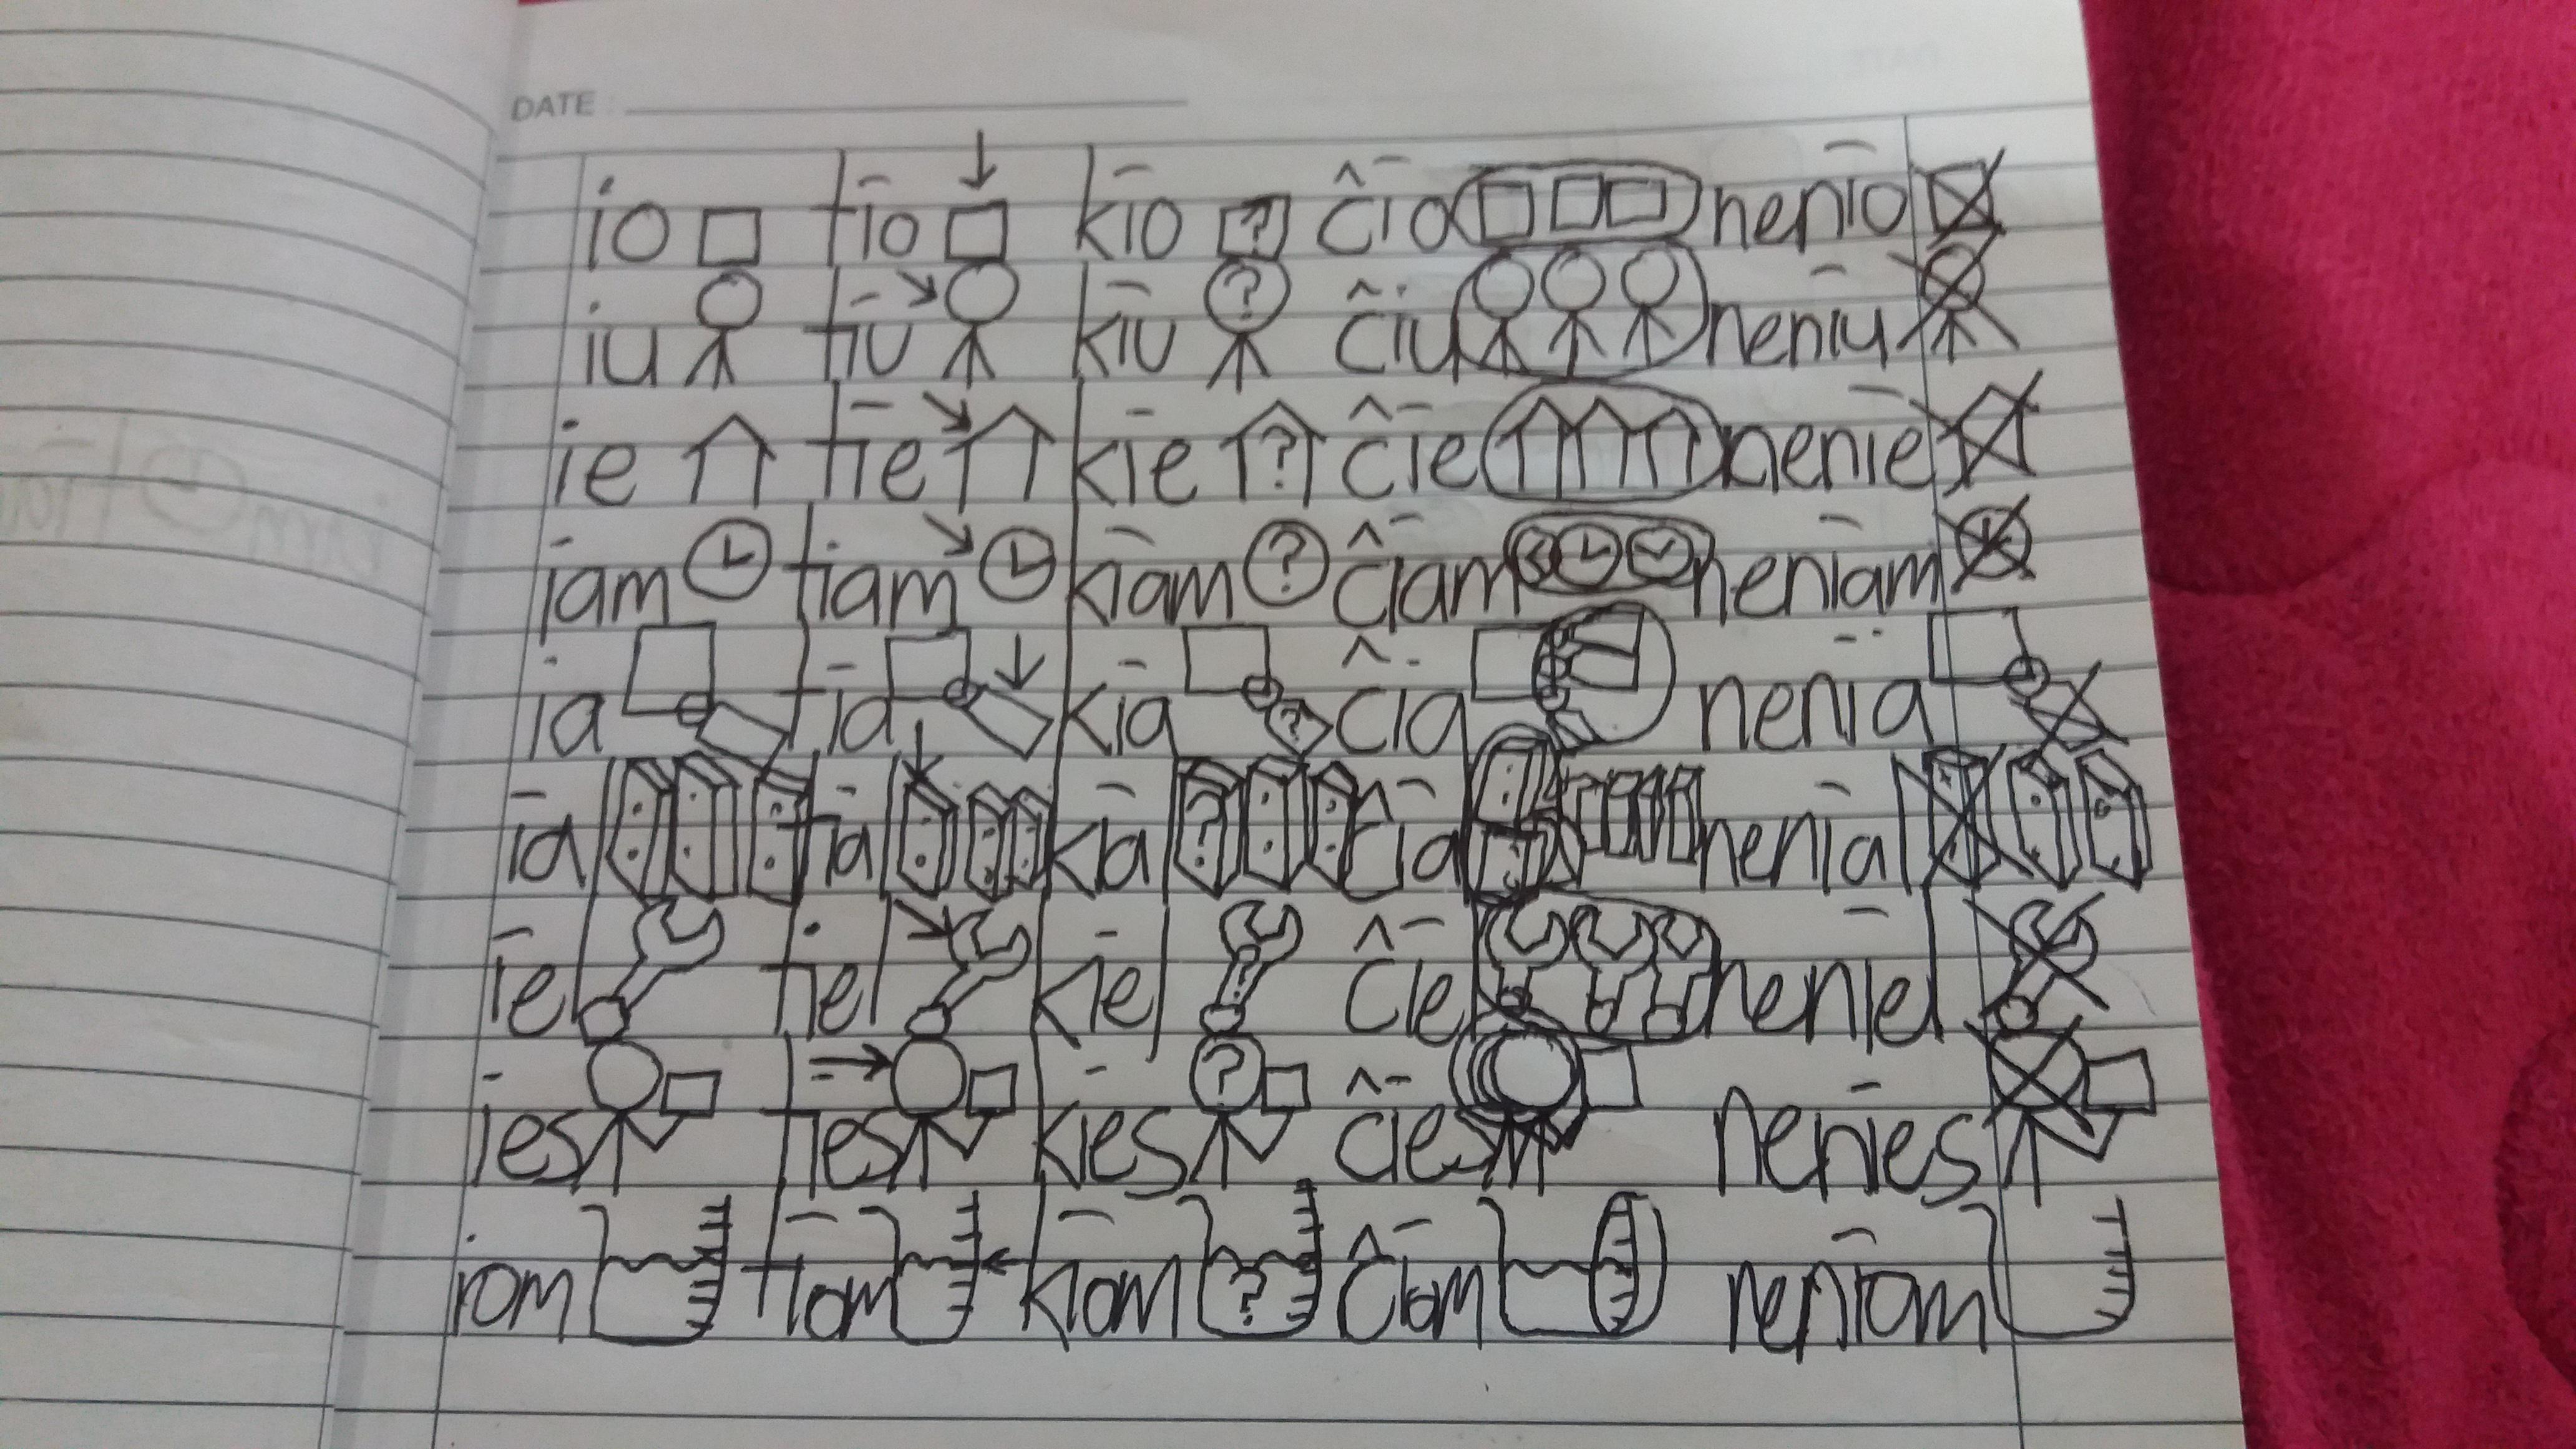 DATE
io tio kio ? ĉio nenio
iu tiu kiu ? ĉiu neniu
ie tie kie ? ĉie nenie
iam tiam kiam ? ĉiam neniam
ia tia kia ? ĉia nenia
ial tial kial ? ĉial nenial
iel tiel kiel ? ĉiel neniel
ies ties kies ? ĉies nenies
iom tiom kiom ? ĉiom neniom